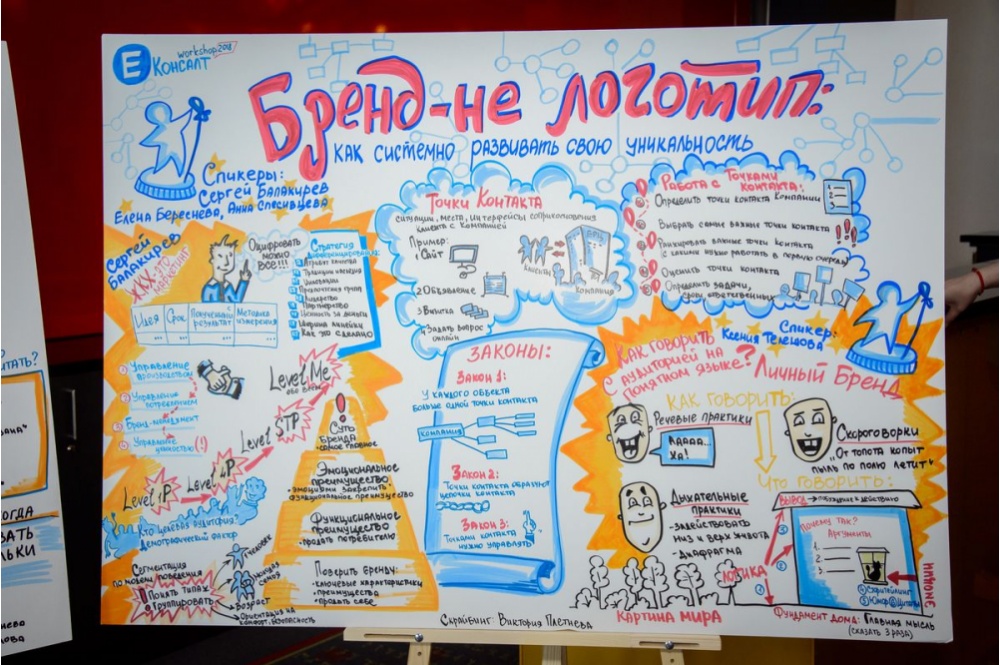 E
Консалт
workshop2018
Бренд-не логотип:
как системно развивать свою уникальность
Спикеры:
Сергей Балакирев
Елена Береснева, Анна Спесивцева
Сергей
Балакирев
Оцифровать
можно
все!!!
Стратегия
Как это сделано
Идея
Срок
Полученный
результат
Методика
измерения
Управление
производством
Управление
потреблением
Бренд-менеджмент
Управление
ценностью(!)
Level 1P
Level 4P
Level STP
Level Me
Кто целевая аудитория?
Демографический фактор
Сегментация
по модели поведения
Понять типаж
Группировать
Человек
Возраст
Ориентация на
комфорт, безопасность
!
Суть
бренда
-самое главное
Эмоциональное
преимущество
-эмоциями закрепить
функциональное преимущество
Функциональное
преимущество
-продать потребителю
Поверить бренду:
-ключевые характеристики
-преимущества
-продать себе
Точки Контакта
ситуации, места, интерфейсы соприкосновения
клиента с компанией
Пример:
1 Сайт
2 Объявление
3 Визитка
4 Задать вопрос
онлайн
Клиенты
Компания
Работа с Точками
контакта:
Определить точки контакта компании
Выбрать самые важные точки контакта
Ранжировать важные точки контакта
с какими нужно работать в первую очередь
Оценить точки контакта
Определить задачи,
сроки ответственных
Законы:
Закон 1:
У каждого объекта
больше одной точки контакта
компания
Закон 2:
Точки контакта образуют
цепочки контакта
Закон 3:
Точками контакта
нужно управлять
Спикер:
Ксения Теленова
Как говорить
с аудиторией на
понятном языке?
Личный Бренд
Как говорить:
Речевые практики
Ааааа...
Ха!
Скороговорки
„От топота копыт
пыль по полю летит“
Дыхательные
практики
-задействовать
низ и верх живота
-диафрагма
Что говорить:
Вывод → побуждение к действию
Почему так?
Аргументы
1.
2.
3.
Скрайбинг
Юмор Цитаты
Логика
Эмоции
Картина мира
Фундамент дома: Главная мысль
(сказать 3 раза)
Скрайбинг: Виктория Плетнева